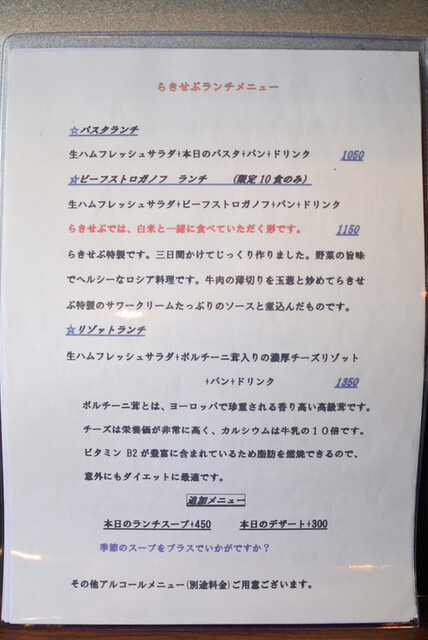 らきせぶランチメニュー
☆パスタランチ
生ハムフレッシュサラダ+本日のパスタ+パン+ドリンク 1050
☆ビーフストロガノフ ランチ (限定10食のみ)
生ハムフレッシュサラダ+ビーフストロガノフ+パン+ドリンク
らきせぶでは、白米と一緒に食べていただく形です。 1150
らきせぶ特製です。三日間かけてじっくり作りました。野菜の旨味
でヘルシーなロシア料理です。牛肉の薄切りを玉葱と炒めてらきせ
ぶ特製のサワークリームたっぷりのソースと煮込んだものです。
☆リゾットランチ
生ハムフレッシュサラダ+ポルチーニ茸入りの濃厚チーズリゾット
+パン+ドリンク 1350
ポルチーニ茸とは、ヨーロッパで珍重される香り高い高級茸です。
チーズは栄養価が非常に高く、カルシウムは牛乳の10倍です。
ビタミン B2が豊富に含まれているため脂肪を燃焼できるので、
意外にもダイエットに最適です。
追加メニュー
本日のランチスープ+450 本日のデザート+300
季節のスープをプラスでいかがですか?
その他アルコールメニュー(別途料金)ご用意ございます。